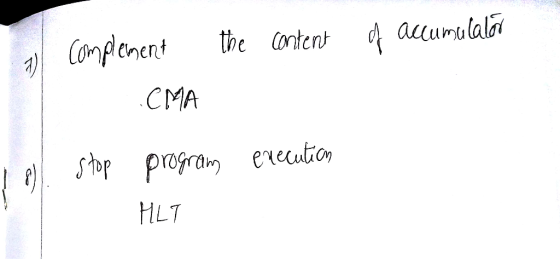 7) Complement the content of accumulator
CMA
8) stop program execution
HLT